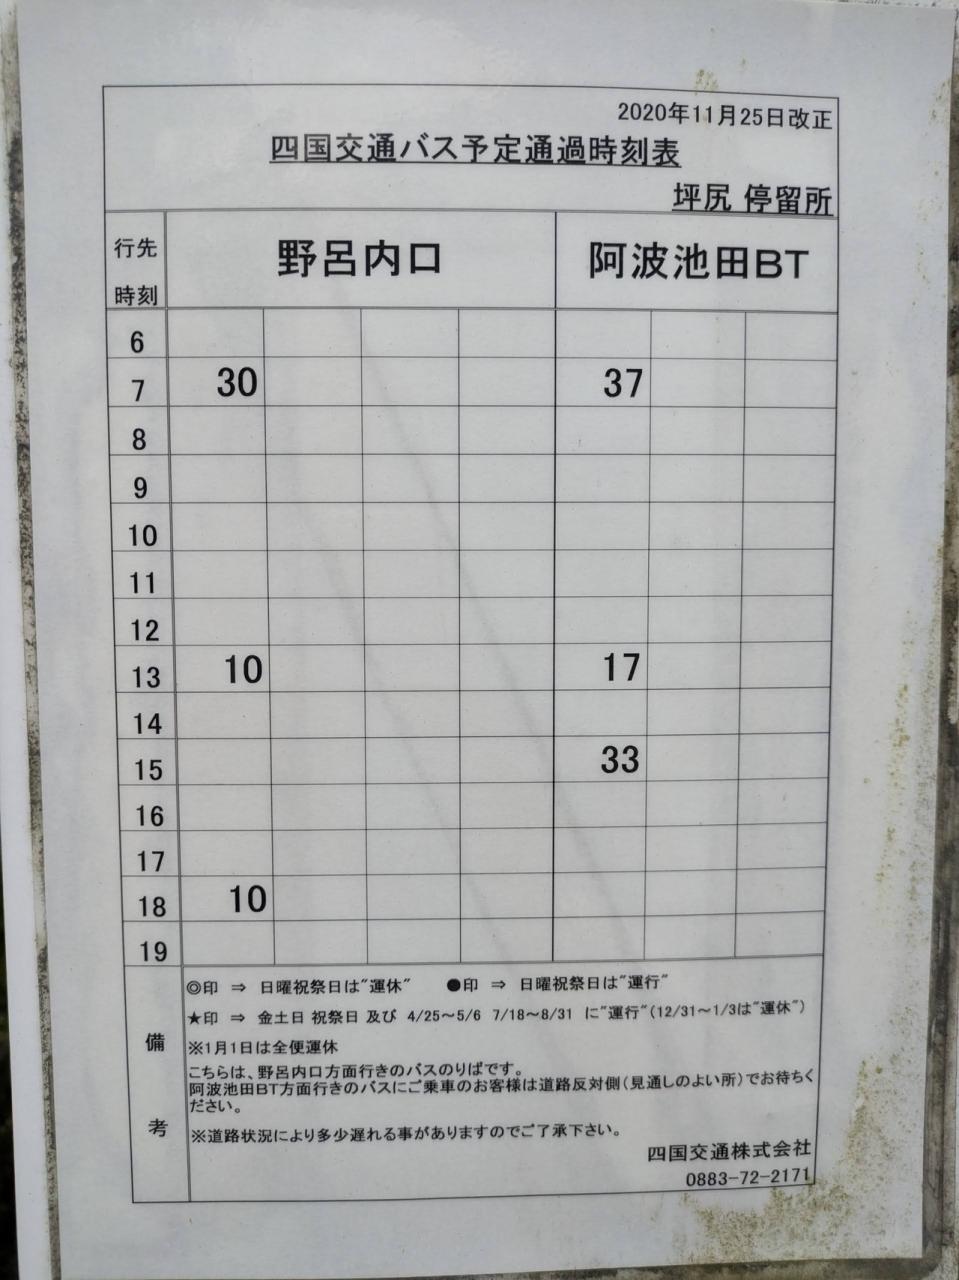 2020年11月25日改正
四国交通バス予定通過時刻表
坪尻 停留所
行先 野呂内口 阿波池田BT
時刻
6
7 30 37
8
9
10
11
12
13 10 17
14
15 33
16
17
18 10
19
備考
◎印 ⇒ 日曜祝祭日は"運休" ●印 ⇒ 日曜祝祭日は"運行"
★印 ⇒ 金土日 祝祭日 及び 4/25～5/6 7/18～8/31 に"運行"(12/31～1/3は"運休")
※1月1日は全便運休
こちらは、野呂内口方面行きのバスのりばです。
阿波池田BT方面行きのバスにご乗車のお客様は道路反対側(見通しのよい所)でお待ちく
ださい。
※道路状況により多少遅れる事がありますのでご了承下さい。
四国交通株式会社
0883-72-2171